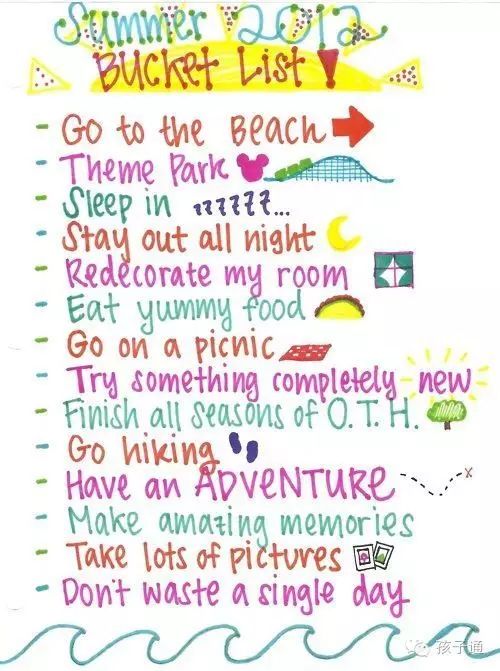 Summer 2012
BUCKET LIST!
- Go to the BEACH
- Theme Park
- Sleep in zzzzzz...
- Stay out all night
- Redecorate my room
- Eat yummy food
- Go on a picnic
- Try something completely new
- Finish all seasons of O.T.H.
- Go hiking
- Have an ADVENTURE
- Make amazing memories
- Take lots of pictures
- Don't waste a single day
孩子通